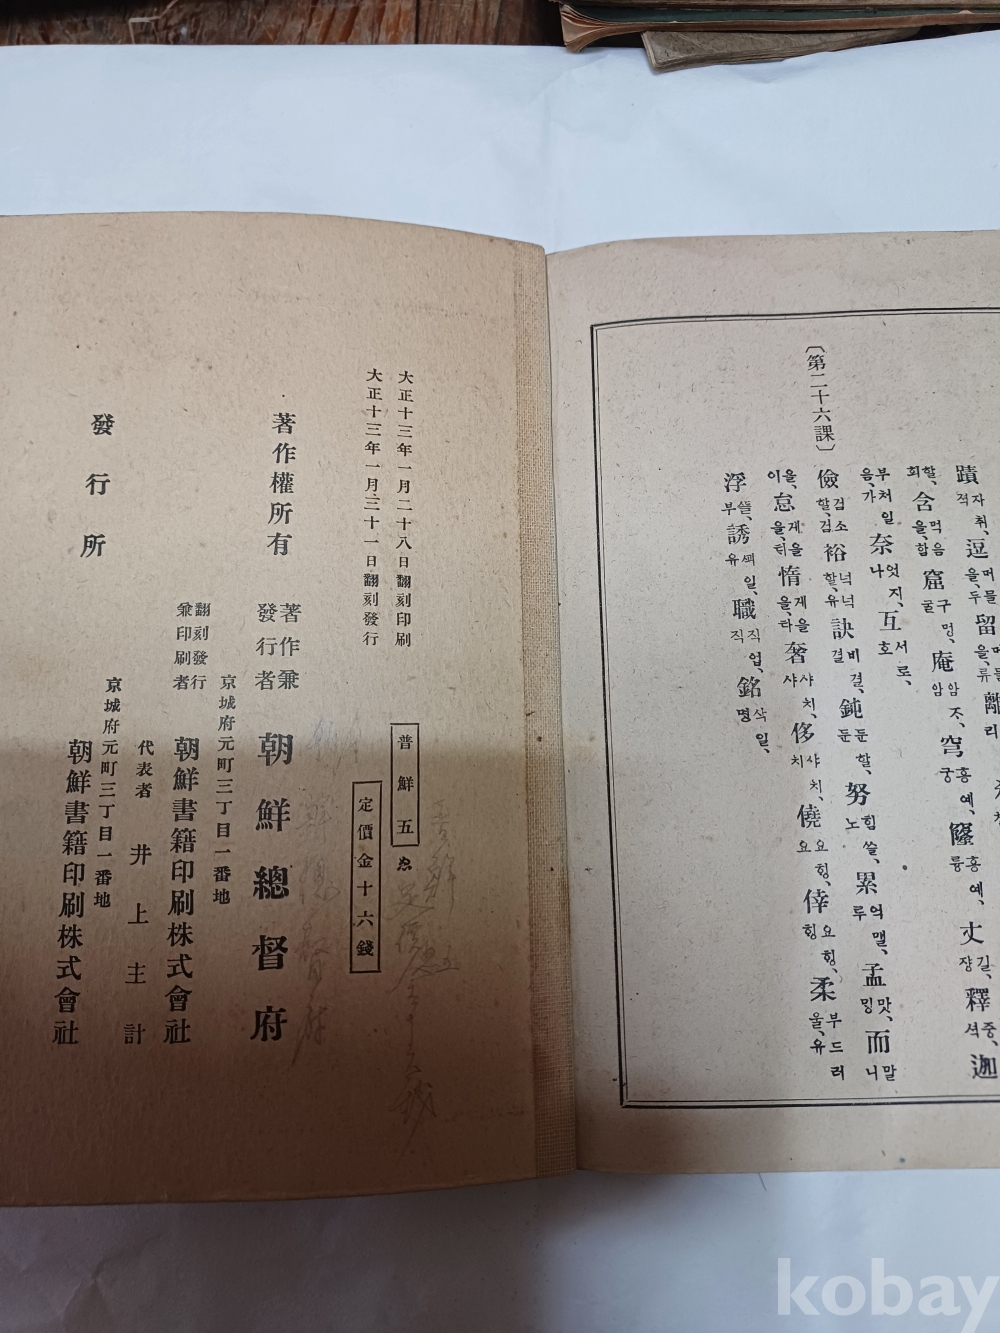 蹟 자취、적 逗 머물을、두 留 머물을、류 離
含 먹음을、함 窟 구멍、굴 庵 암ᄌᆞ、암 穹 홍예、궁 窿 홍예、륭 丈 길、쟝 釋 중、셕 迦
부처일음、가 奈 엇지、나 互 서로、호
〔第二十六課〕
儉 검소할、검 裕 넉넉할、유 訣 비결、결 鈍 둔할、둔 努 힘쓸、노 累 루 孟 맛、ᄆᆡᆼ 而 말
니을、이 怠 게을을、ᄐᆡ 惰 게을을、타 奢 샤치、샤 侈 샤치、치 僥 요ᄒᆡᆼ、요 倖 요ᄒᆡᆼ、ᄒᆡᆼ 柔 부드러울、유
浮 ᄯᅳᆯ、부 誘 일、유 職 직업、직 銘 삭일、명
大正十三年一月二十八日翻刻印刷
大正十三年一月三十一日翻刻發行
普鮮五
定價金十六錢
著作權所有
著作兼發行者 朝鮮總督府
京城府元町三丁目一番地
翻刻發行兼印刷者 朝鮮書籍印刷株式會社
代表者 井上主計
京城府元町三丁目一番地
發行所 朝鮮書籍印刷株式會社
kobay